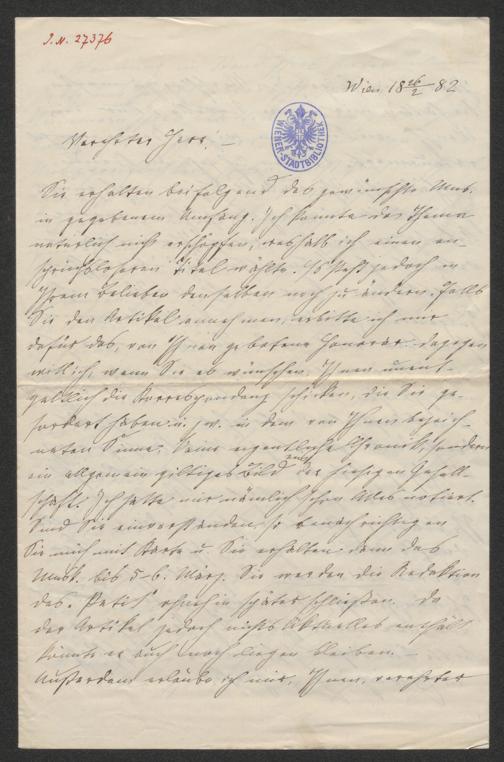 J. N. 27376
Wien 18 26/2 82
WIENER STADTBIBLIOTHEK
Verehrter Herr! –
Sie erhalten beifolgend das gewünschte Mns.
in gegebenem Umfang. Ich konnte das Thema
natürlich nicht erschöpfen, weshalb ich einen an-
spruchsloseren Titel wählte. Es steht jedoch in
Ihrem Belieben denselben noch zu ändern. Falls
Sie den Artikel annehmen, erbitte ich mir
dafür das, von Ihnen gebotene Honorar – dagegen
will ich, wenn Sie es wünschen, Ihnen unent-
geltlich die Korrespondenz schicken, die Sie ge-
fordert haben u. zw. in dem von Ihnen bezeich-
neten Sinne. Keine eigentliche Chronik, sondern
ein allgemein giltiges Bild aus der hiesigen Gesell-
schaft. Ich hatte mir nämlich schon Alles notiert.
Sind Sie einverstanden, so benachrichtigen
Sie mich mit Karte u. Sie erhalten dann das
Mnsk. bis 5–6. März. Sie werden die Redaktion
des ohnehin später schließen. Da
der Artikel jedoch nichts Aktuelles enthält
könnte er auch noch liegen bleiben. –
Außerdem erlaube ich mir, Ihnen, verehrter